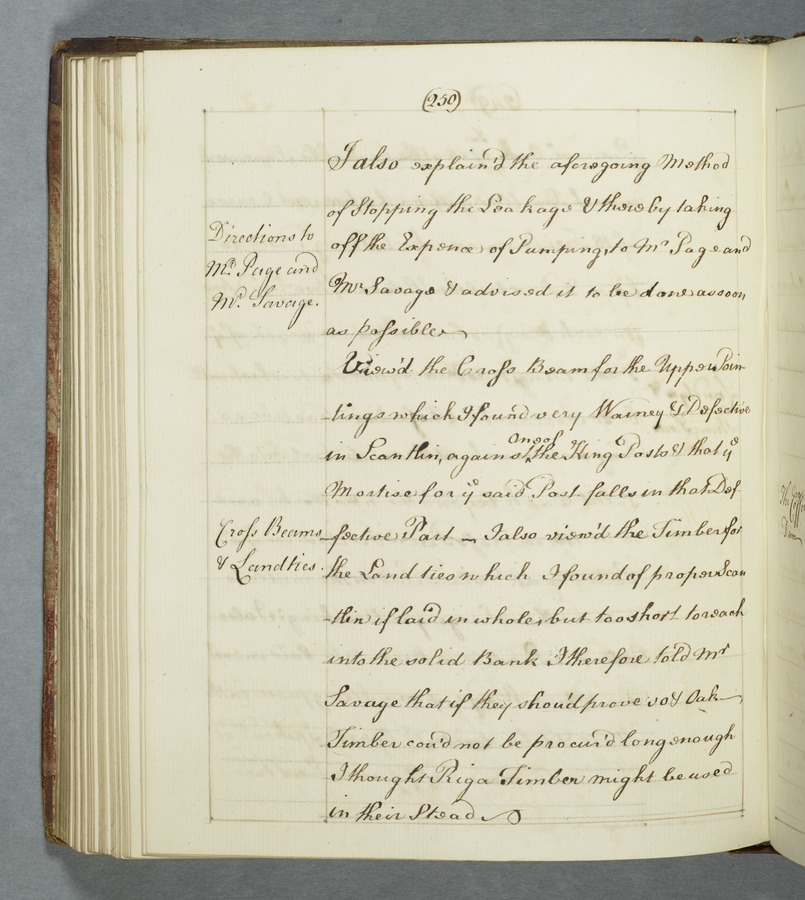 (250)
I also explain'd the aforegoing Method
of Stopping the Leakage & thereby taking
Directions to
Mr. Page and
Mr. Savage.
off the Expence of Pumping, to Mr Page and
Mr Savage & advised it to be done as soon
as possible
View'd the Cross Beam for the Upper Poin-
-tings which I found very Wainey & Defective
in Scantlin, against one of the King Posts & that ye
Mortise for ye said Post falls in that Def
Cross Beams
& Landties.
-fective Part — I also view'd the Timber for
the Land ties which I found of proper Scan
-tlin if laid in whole, but too short to reach
into the solid Bank I therefore told Mr
Savage that if they shou'd prove so & Oak
Timber cou'd not be procur'd long enough
I thought Riga Timber might be used
in their Stead